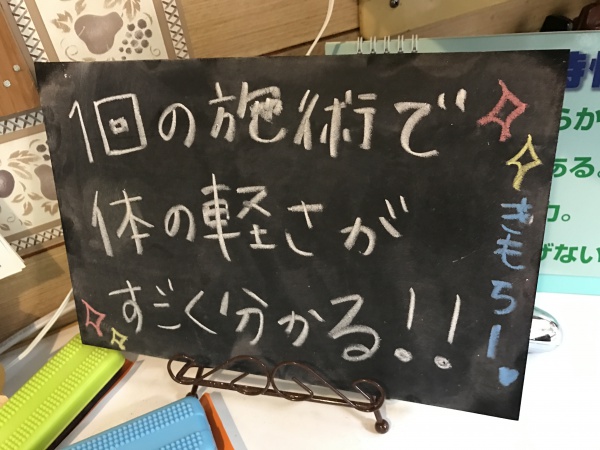 1回の施術で
体の軽さが
すごく分かる!!
きもちー
らか
ある。
力。
がない